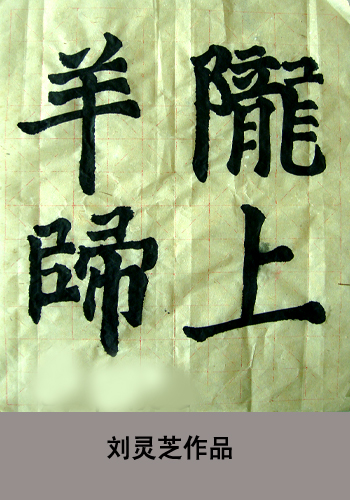 隴上
羊歸
刘灵芝作品